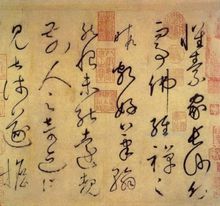 懷素家長沙幼而
事佛經禪之
暇頗好筆翰
然恨未能遠覩
前人之奇迹所
見甚淺遂擔